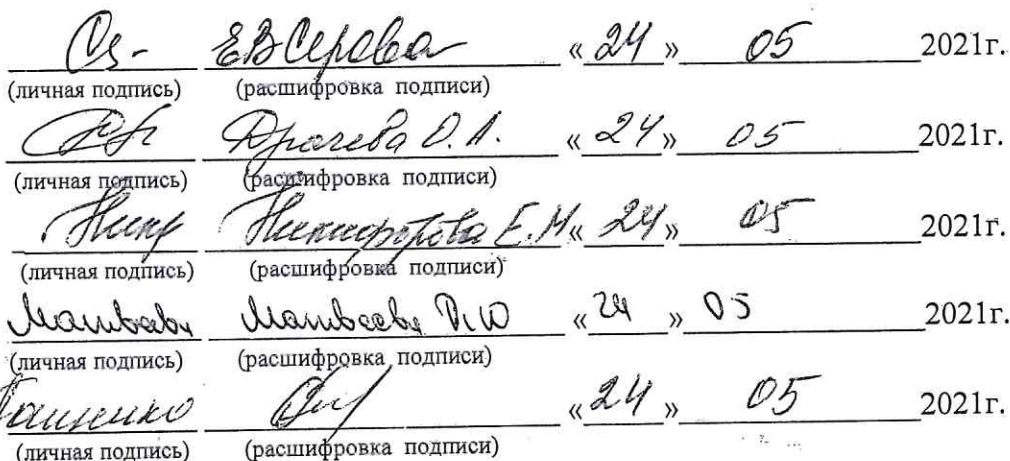 ЕВ Серова « 24 » 05 2021г.
(личная подпись) (расшифровка подписи)
Драчева О.А. « 24 » 05 2021г.
(личная подпись) (расшифровка подписи)
Ник Никифорова Е.Н « 24 » 05 2021г.
(личная подпись) (расшифровка подписи)
Матвеева Матвеева « 24 » 05 2021г.
(личная подпись) (расшифровка подписи)
Пащенко « 24 » 05 2021г.
(личная подпись) (расшифровка подписи)